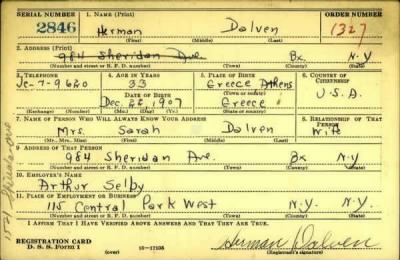 SERIAL NUMBER 1. NAME (Print) ORDER NUMBER
2846 Herman Dalven 1327
(First) (Middle) (Last)
2. ADDRESS (Print)
984 Sheridan Ave. Bx. N.Y
(Number and street or R. F. D. number) (Town) (County) (State)
3. TELEPHONE 4. AGE IN YEARS 5. PLACE OF BIRTH 6. COUNTRY OF CITIZENSHIP
Je-7-9620 33 Greece Athens
DATE OF BIRTH (Town or county) U.S.A.
Dec. 1907 Greece
(Exchange) (Number) (Mo.) (Day) (Yr.) (State or country)
7. NAME OF PERSON WHO WILL ALWAYS KNOW YOUR ADDRESS 8. RELATIONSHIP OF THAT PERSON
Mrs. Sarah Dalven Wife
(Mr., Mrs., Miss) (First) (Middle) (Last)
9. ADDRESS OF THAT PERSON
984 Sheridan Ave. Bx N.Y
(Number and street or R. F. D. number) (Town) (County) (State)
10. EMPLOYER'S NAME
Arthur Selby
11. PLACE OF EMPLOYMENT OR BUSINESS
115 Central Park West N.Y. N.Y.
(Number and street or R. F. D. number) (Town) (County) (State)
I AFFIRM THAT I HAVE VERIFIED ABOVE ANSWERS AND THAT THEY ARE TRUE.
REGISTRATION CARD
D. S. S. Form 1 (over) 16-17105 Herman Dalven
(Registrant's signature)